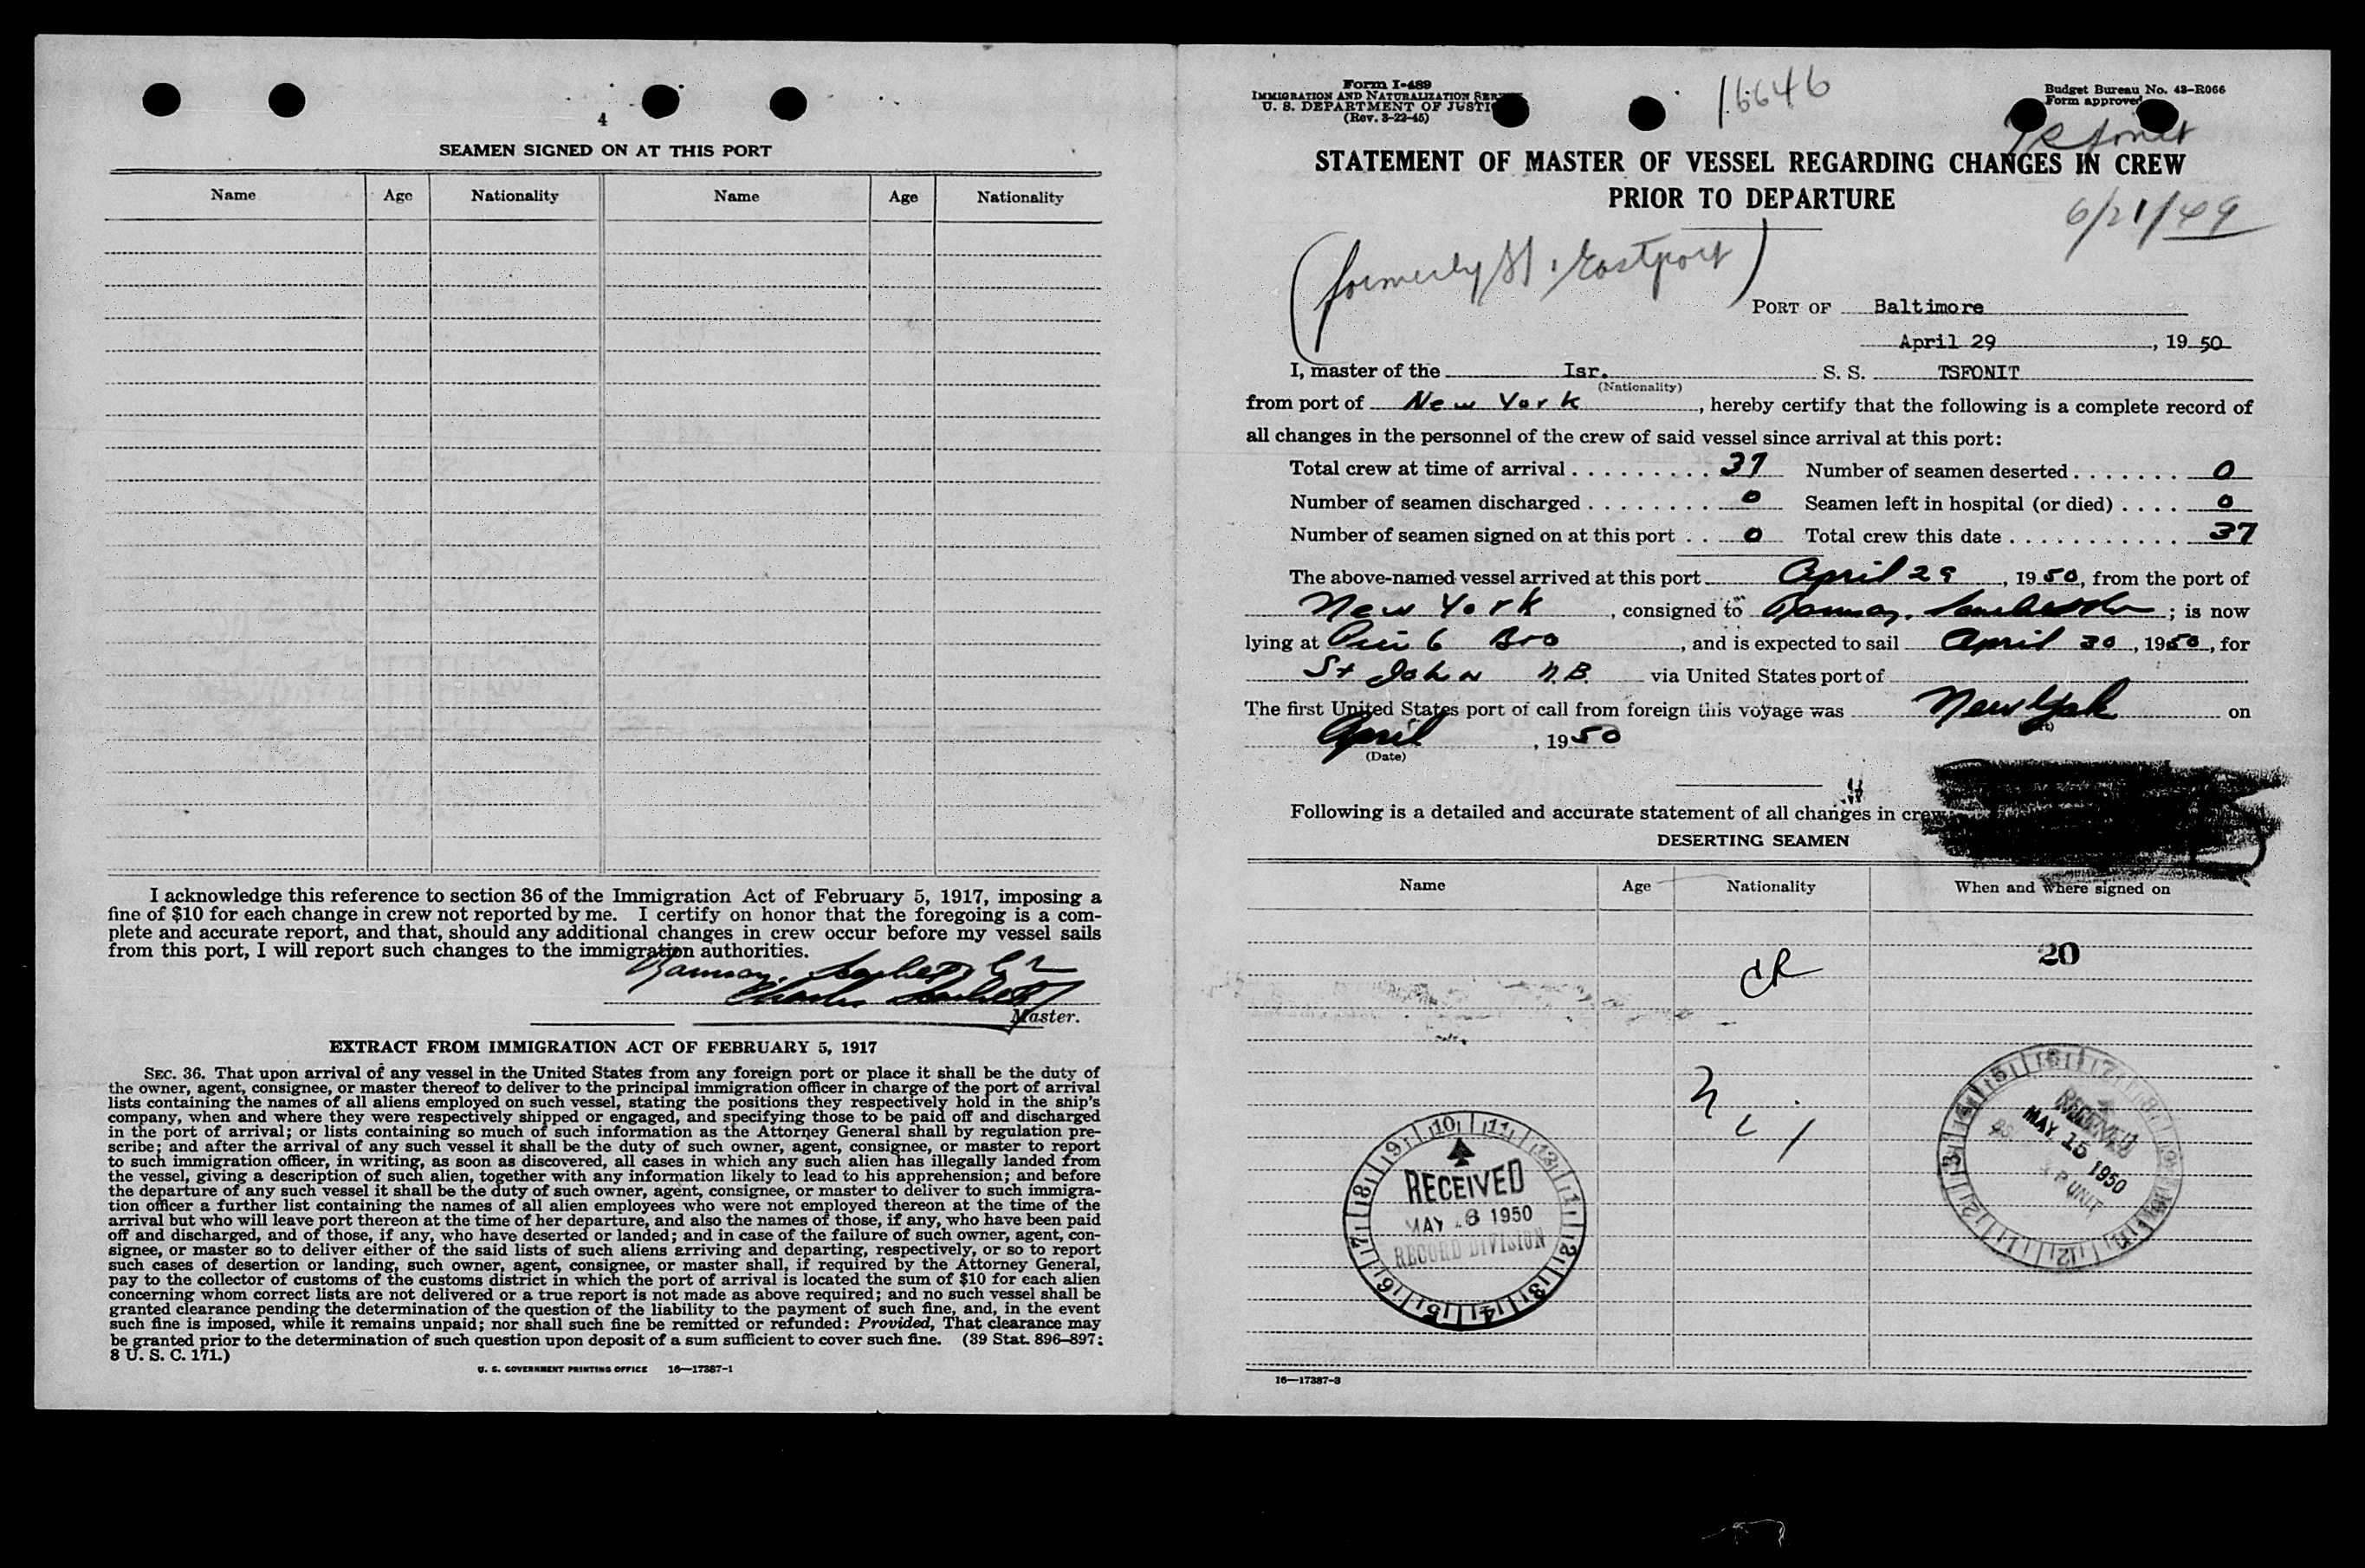 4
SEAMEN SIGNED ON AT THIS PORT
Name Age Nationality Name Age Nationality
I acknowledge this reference to section 36 of the Immigration Act of February 5, 1917, imposing a
fine of $10 for each change in crew not reported by me. I certify on honor that the foregoing is a com-
plete and accurate report, and that, should any additional changes in crew occur before my vessel sails
from this port, I will report such changes to the immigration authorities.
Master.
EXTRACT FROM IMMIGRATION ACT OF FEBRUARY 5, 1917
SEC. 36. That upon arrival of any vessel in the United States from any foreign port or place it shall be the duty of
the owner, agent, consignee, or master thereof to deliver to the principal immigration officer in charge of the port of arrival
lists containing the names of all aliens employed on such vessel, stating the positions they respectively hold in the ship's
company, when and where they were respectively shipped or engaged, and specifying those to be paid off and discharged
in the port of arrival; or lists containing so much of such information as the Attorney General shall by regulation pre-
scribe; and after the arrival of any such vessel it shall be the duty of such owner, agent, consignee, or master to report
to such immigration officer, in writing, as soon as discovered, all cases in which any such alien has illegally landed from
the vessel, giving a description of such alien, together with any information likely to lead to his apprehension; and before
the departure of any such vessel it shall be the duty of such owner, agent, consignee, or master to deliver to such immigra-
tion officer a further list containing the names of all alien employees who were not employed thereon at the time of the
arrival but who will leave port thereon at the time of her departure, and also the names of those, if any, who have been paid
off and discharged, and of those, if any, who have deserted or landed; and in case of the failure of such owner, agent, con-
signee, or master so to deliver either of the said lists of such aliens arriving and departing, respectively, or so to report
such cases of desertion or landing, such owner, agent, consignee, or master shall, if required by the Attorney General,
pay to the collector of customs of the customs district in which the port of arrival is located the sum of $10 for each alien
concerning whom correct lists are not delivered or a true report is not made as above required; and no such vessel shall be
granted clearance pending the determination of the question of the liability to the payment of such fine, and, in the event
such fine is imposed, while it remains unpaid; nor shall such fine be remitted or refunded: Provided, That clearance may
be granted prior to the determination of such question upon deposit of a sum sufficient to cover such fine. (39 Stat. 896–897;
8 U. S. C. 171.)
U. S. GOVERNMENT PRINTING OFFICE 16—17387-1
Form I-489
IMMIGRATION AND NATURALIZATION
U. S. DEPARTMENT OF JUSTI
(Rev. 3-22-45)
16646
Budget Bureau No. 43-R066
Form approved
STATEMENT OF MASTER OF VESSEL REGARDING CHANGES IN CREW
PRIOR TO DEPARTURE
6/21/49
(formerly Eastport)
PORT OF Baltimore
April 29, 1950
I, master of the Isr. S. S. TSFONIT
(Nationality)
from port of New York, hereby certify that the following is a complete record of
all changes in the personnel of the crew of said vessel since arrival at this port:
Total crew at time of arrival 37 Number of seamen deserted 0
Number of seamen discharged 0 Seamen left in hospital (or died) 0
Number of seamen signed on at this port 0 Total crew this date 37
The above-named vessel arrived at this port April 29, 1950, from the port of
New York, consigned to Ramsay, ; is now
lying at Pier 6 B&O, and is expected to sail April 30, 1950, for
St John N.B. via United States port of
The first United States port of call from foreign this voyage was New York on
April, 1950
(Date)
Following is a detailed and accurate statement of all changes in crew
DESERTING SEAMEN
Name Age Nationality When and where signed on
20
RECEIVED
MAY 15 1950
RECEIVED
MAY 1950
RECORD DIVISION
16—17387-3